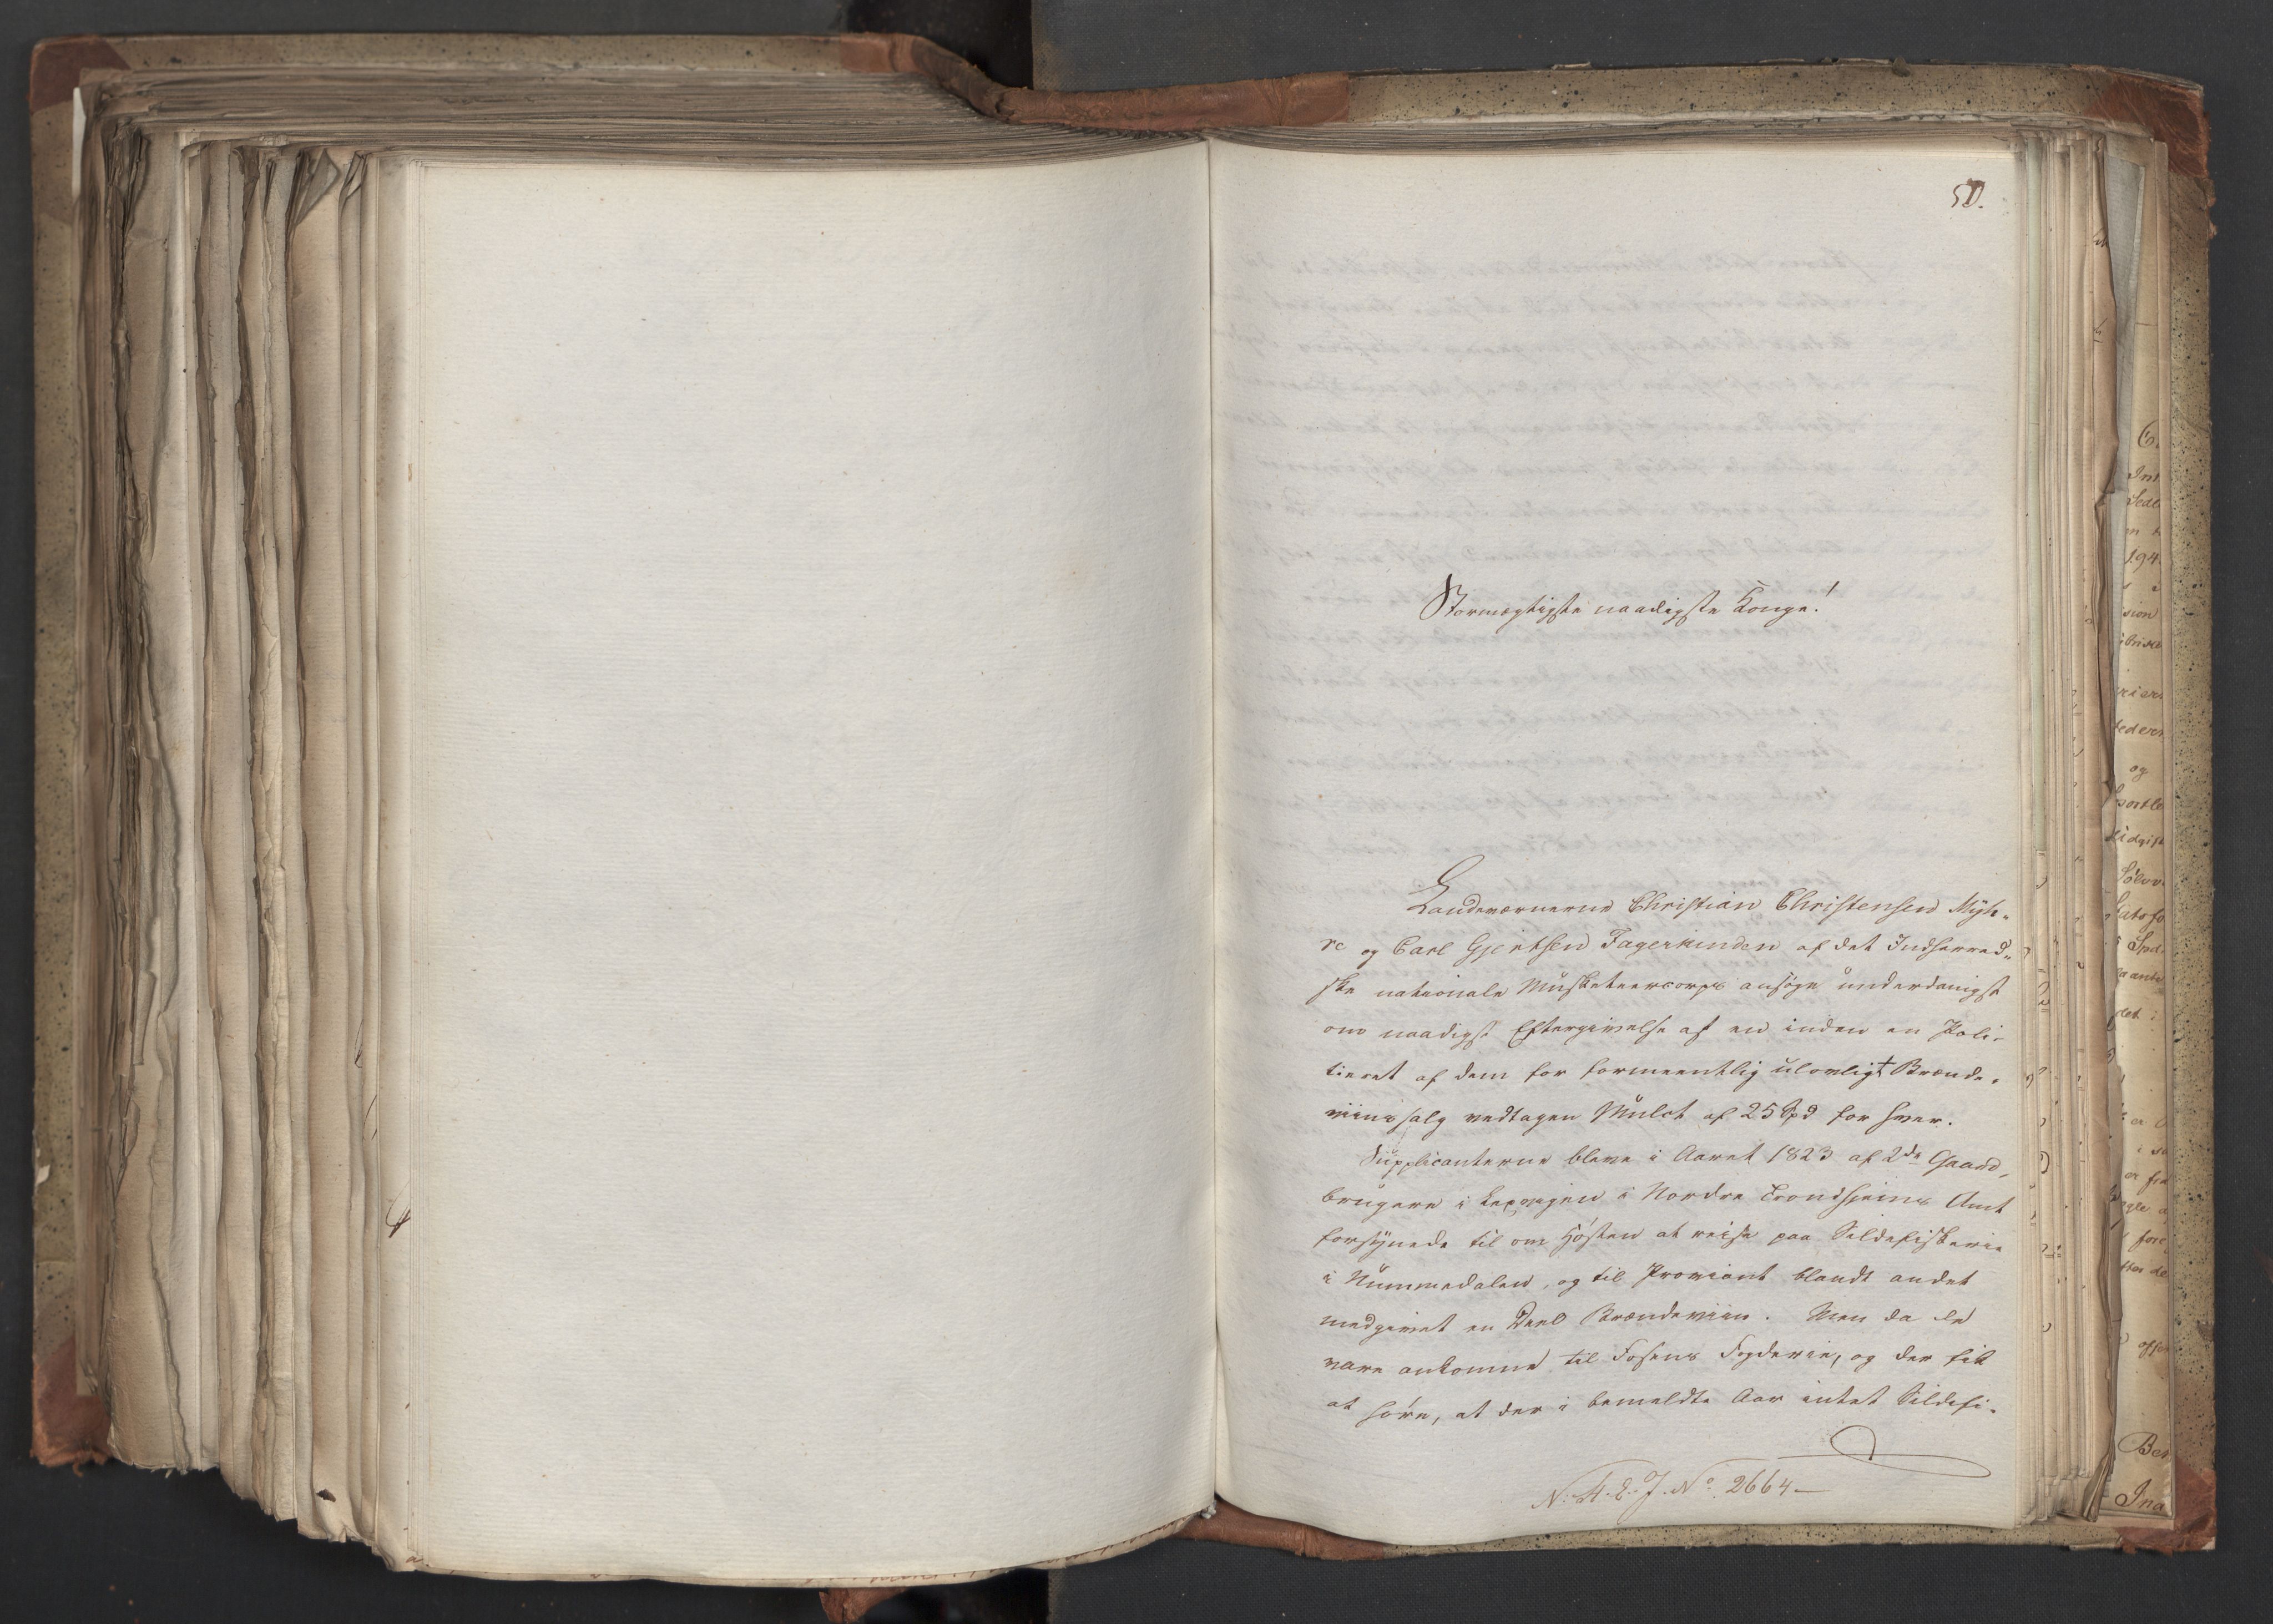 50.
Stormægtigste naadigste Konge!
Landeværnerne Christian Christensen Myh-
re og Carl Gjertsen Fagerkinden af det Indherred-
ske nationale Musketeercorps ansøge underdanigst
om naadigst Eftergivelse af en inden en Poli-
tieret af dem for formeentlig ulovligt Brænde-
viinssalg vedtagen Mulct af 25 Spd for hver.
Supplicanterne bleve i Aaret 1823 af 2de Gaard-
brugere i Lexvigen i Nordre Trondhjems Amt
forsynede til om Høsten at reise paa Sildefiskerie
i Nummedalen, og til Proviant blandt andet
medgivet en Deel Brændeviin. Men da de
vare ankomne til Fosens Fogderie, og der fik
at høre, at der i bemeldte Aar intet Sildefi-
N. A. E. J. No. 2664